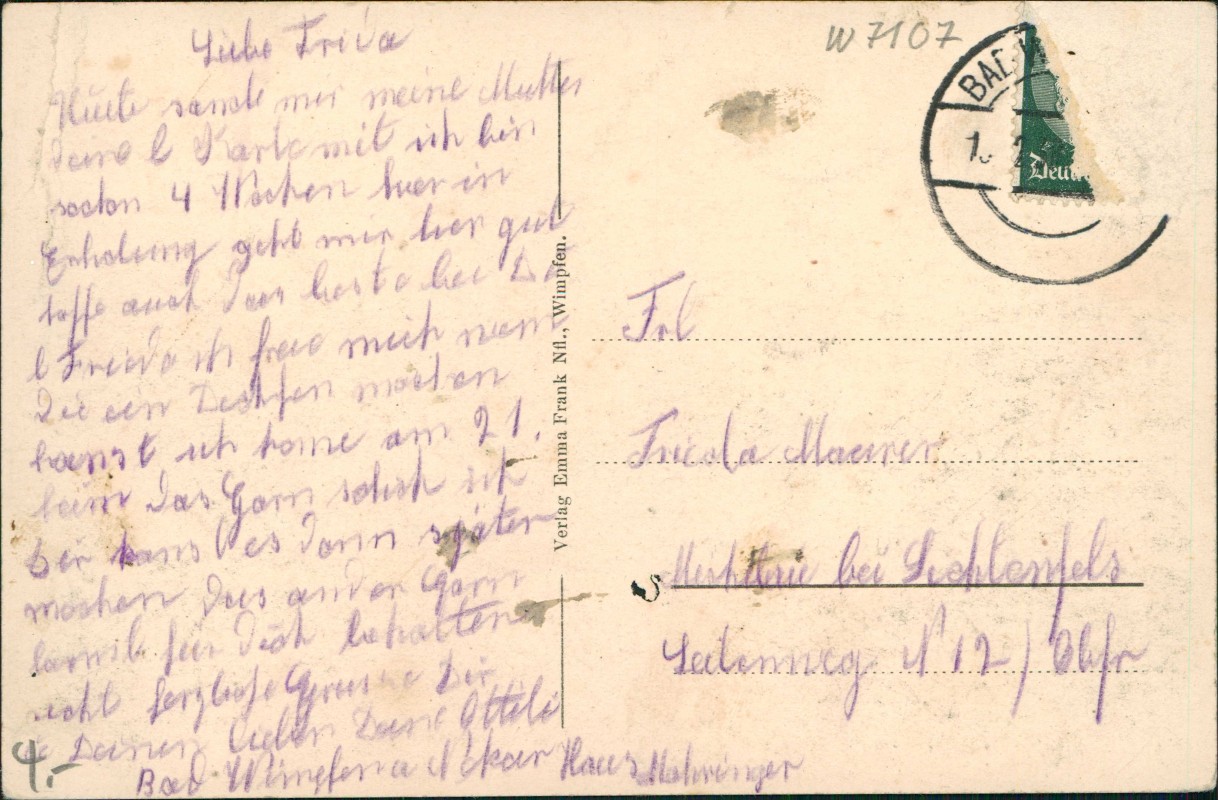 Liebe Frida
Heute sande mir meine Mutter
deine l Karte mit ich bin
schon 4 Wochen hier in
Erholung geht mir hier gut
hoffe auch das beste bei Dir
l Frieda ich freue mich wenn
Die ein Deckchen machen
kannst ich kome am 21.
heim das Garn schick ich
Dir kans es dann später
machen das ander Garn
kannst für dich behalten
recht herzliche Grüsse Dir
Deinen lieben Deine Ottili
Bad Wimpfen a Nekar Haus Mohringer
Verlag Emma Frank Nfl., Wimpfen.
W 7107
BAD W
Deut
Frl
Frieda Maurer
bei Lichtenfels
N 12 / Obfr
4.-